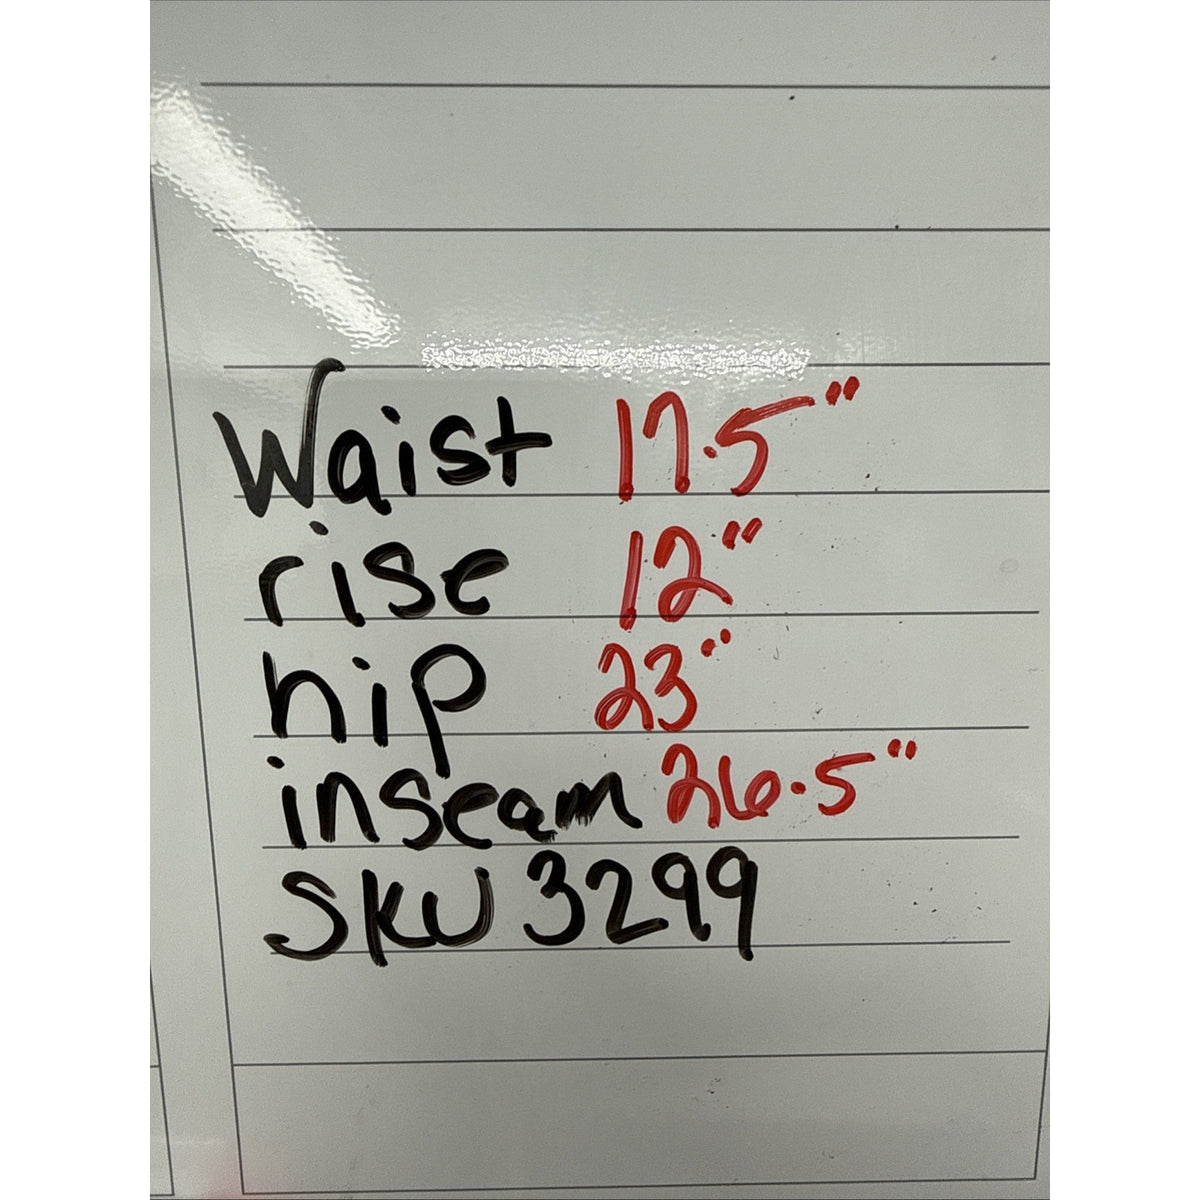 Waist 17.5"
rise 12"
hip 23"
inseam 26.5"
SKU 3299